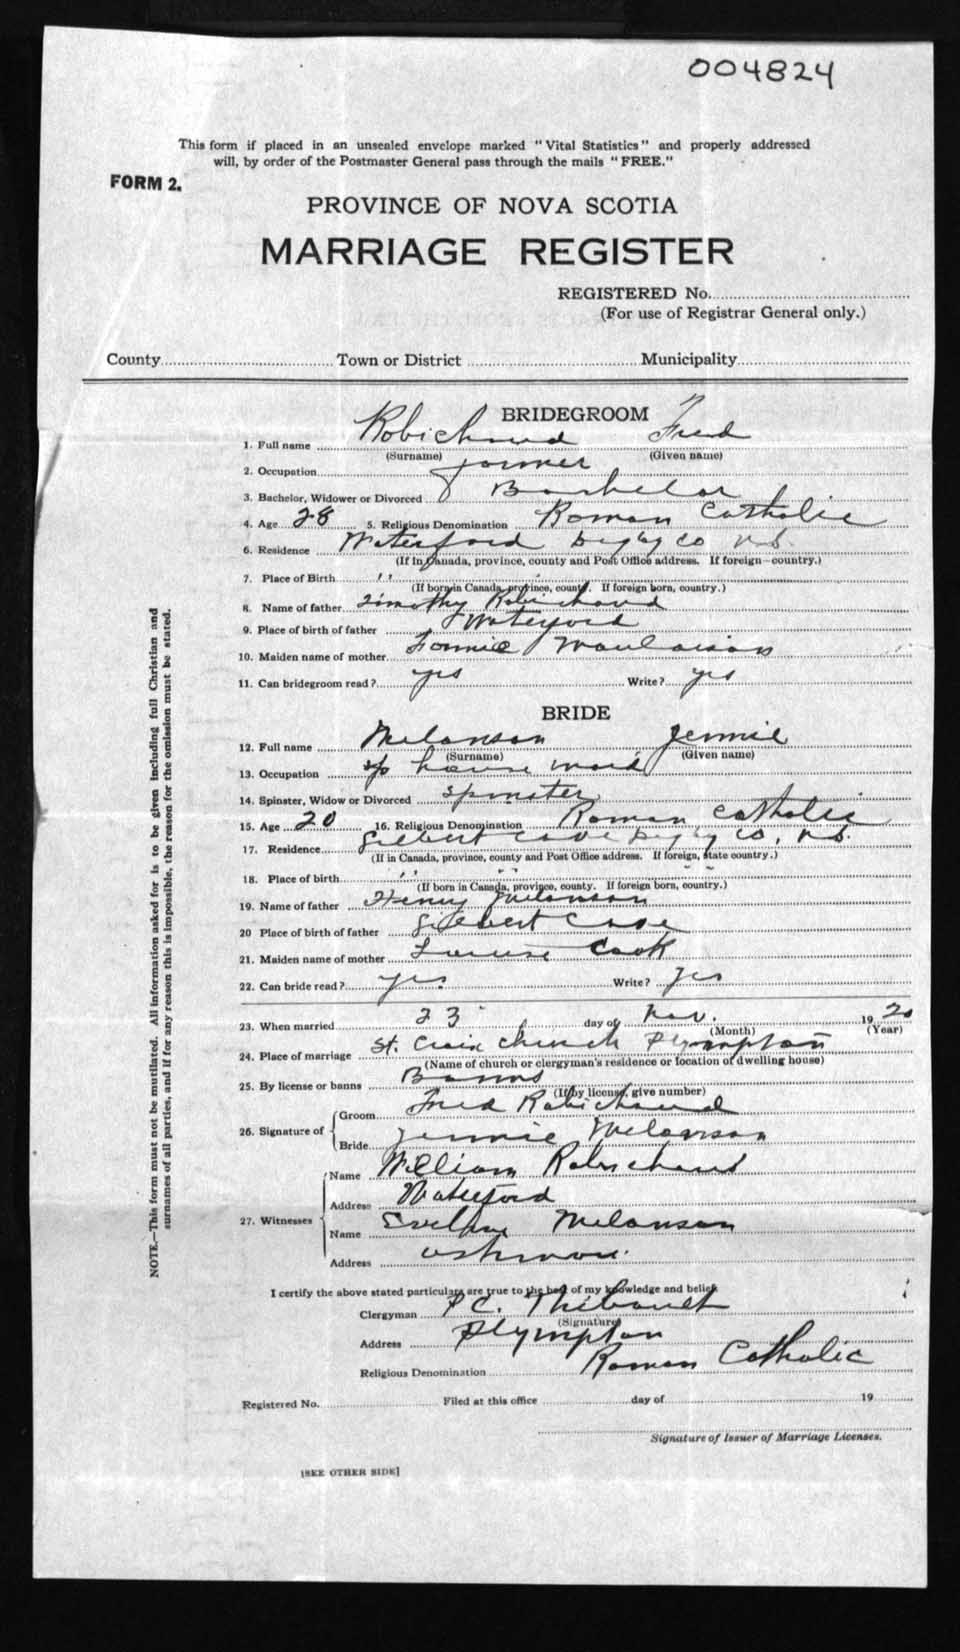 004824
This form if placed in an unsealed envelope marked "Vital Statistics" and properly addressed
will, by order of the Postmaster General pass through the mails "FREE."
FORM 2.
PROVINCE OF NOVA SCOTIA
MARRIAGE REGISTER
REGISTERED No.
(For use of Registrar General only.)
County Town or District Municipality
BRIDEGROOM
1. Full name Robichaud Fred
(Surname) (Given name)
2. Occupation farmer
3. Bachelor, Widower or Divorced Bachelor
4. Age 28 5. Religious Denomination Roman Catholic
6. Residence Waterford Digby Co N.S.
(If in Canada, province, county and Post Office address. If foreign—country.)
7. Place of Birth " "
(If born in Canada, province, county. If foreign born, country.)
8. Name of father Timothy Robichaud
9. Place of birth of father Waterford
10. Maiden name of mother Fannie
11. Can bridegroom read? yes Write? yes
BRIDE
12. Full name Melanson Jennie
(Surname) (Given name)
13. Occupation house maid
14. Spinster, Widow or Divorced spinster
15. Age 20 16. Religious Denomination Roman Catholic
17. Residence Gilbert Cove Digby Co. N.S.
(If in Canada, province, county and Post Office address. If foreign, state country.)
18. Place of birth " " " "
(If born in Canada, province, county. If foreign born, country.)
19. Name of father Henry Melanson
20 Place of birth of father Gilbert Cove
21. Maiden name of mother Louise Cook
22. Can bride read? yes. Write? yes
23. When married 23 day of Nov. 1920
(Month) (Year)
24. Place of marriage St. Croix Church Plympton
(Name of church or clergyman's residence or location of dwelling house)
25. By license or banns Banns
(If by license, give number)
26. Signature of Groom Fred Robichaud
Bride Jennie Melanson
27. Witnesses Name William Robichaud
Address Waterford
Name Evelyn Melanson
Address Ashmore.
I certify the above stated particulars are true to the best of my knowledge and belief.
Clergyman P.C. Thibault
(Signature)
Address Plympton
Religious Denomination Roman Catholic
Registered No. Filed at this office day of 19
Signature of Issuer of Marriage Licenses.
[SEE OTHER SIDE]
NOTE.—This form must not be mutilated. All information asked for is to be given including full Christian and
surnames of all parties, and if for any reason this is impossible, the reason for the omission must be stated.